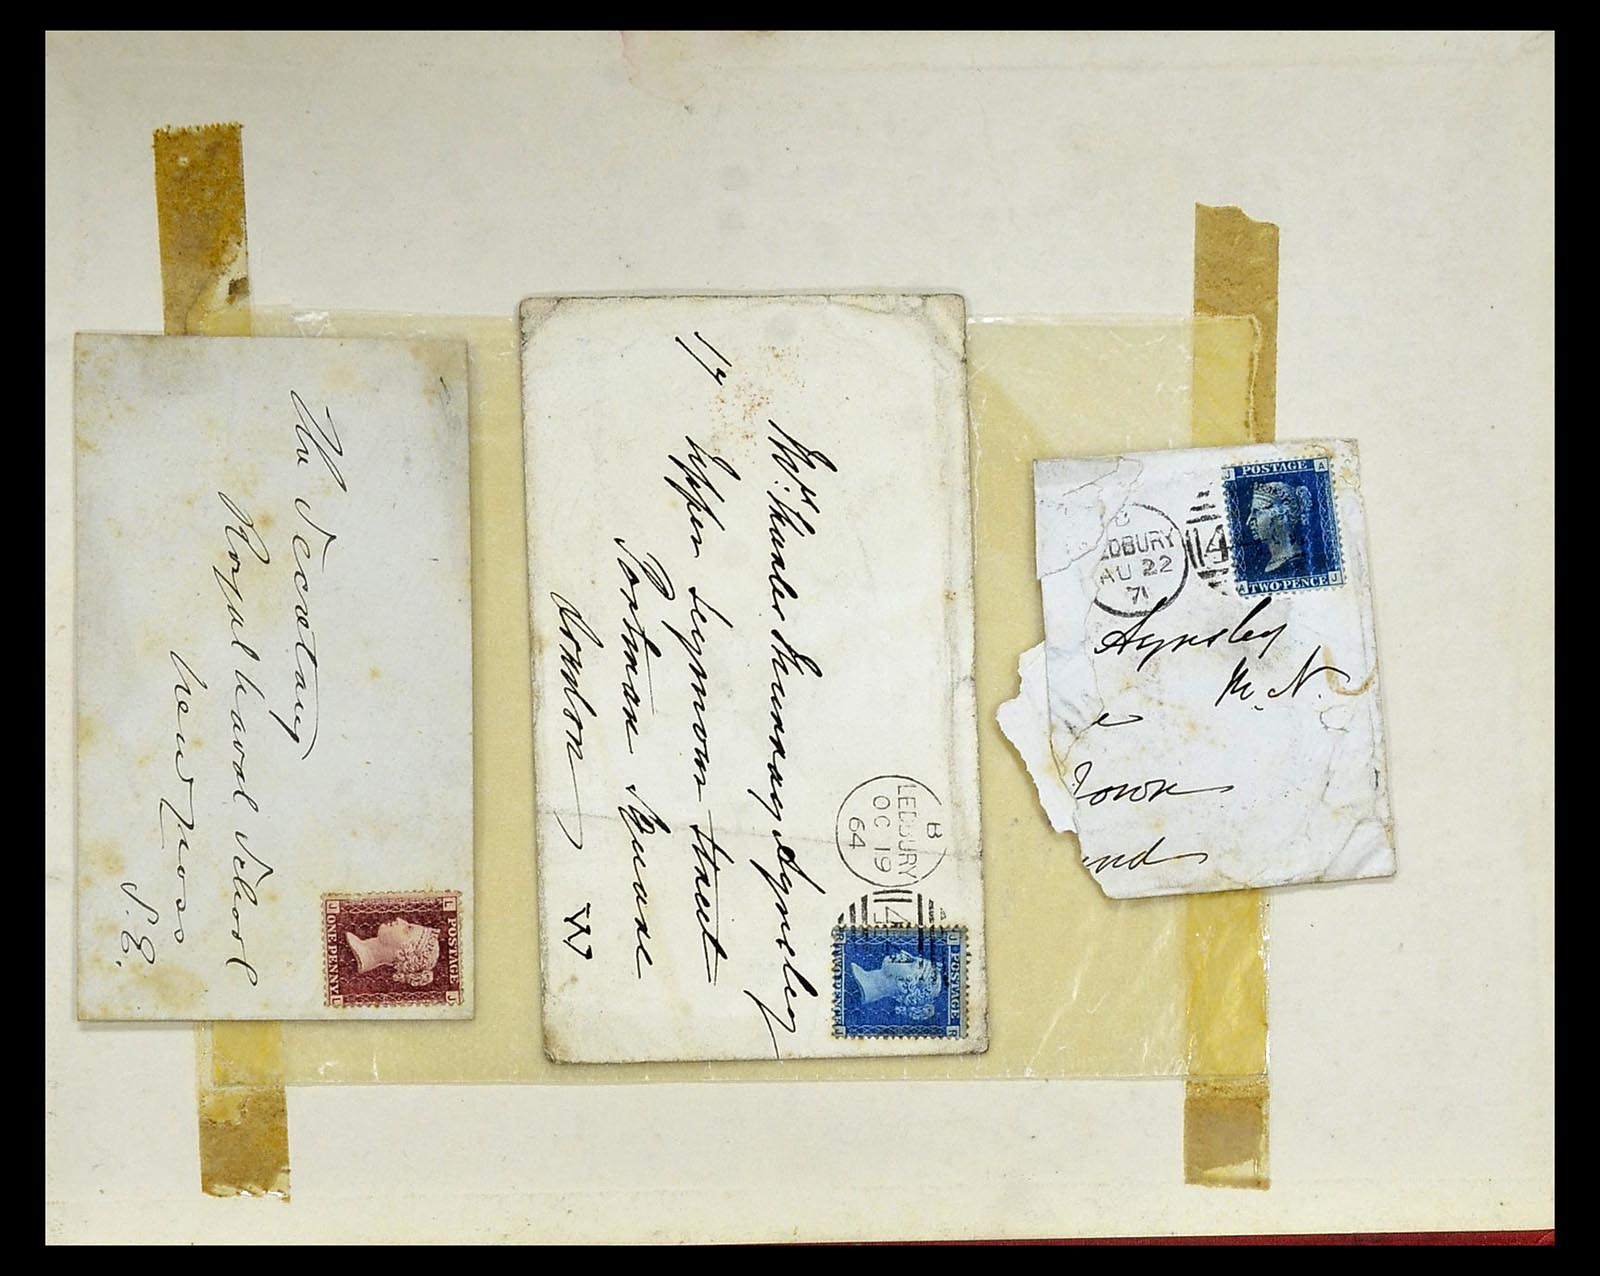 The Secretary
Royal Naval School
New Cross
S.E.
L POSTAGE J
J ONE PENNY L
Mrs. Charles Murray Aynsley
17 Upper Seymour Street
Portman Square
London
W
B
LEDBURY
OC 19
64
J POSTAGE R
R TWO PENCE J
J POSTAGE A
A TWO PENCE J
EDBURY
AU 22
71
4
Aynsley
R.N.
Town